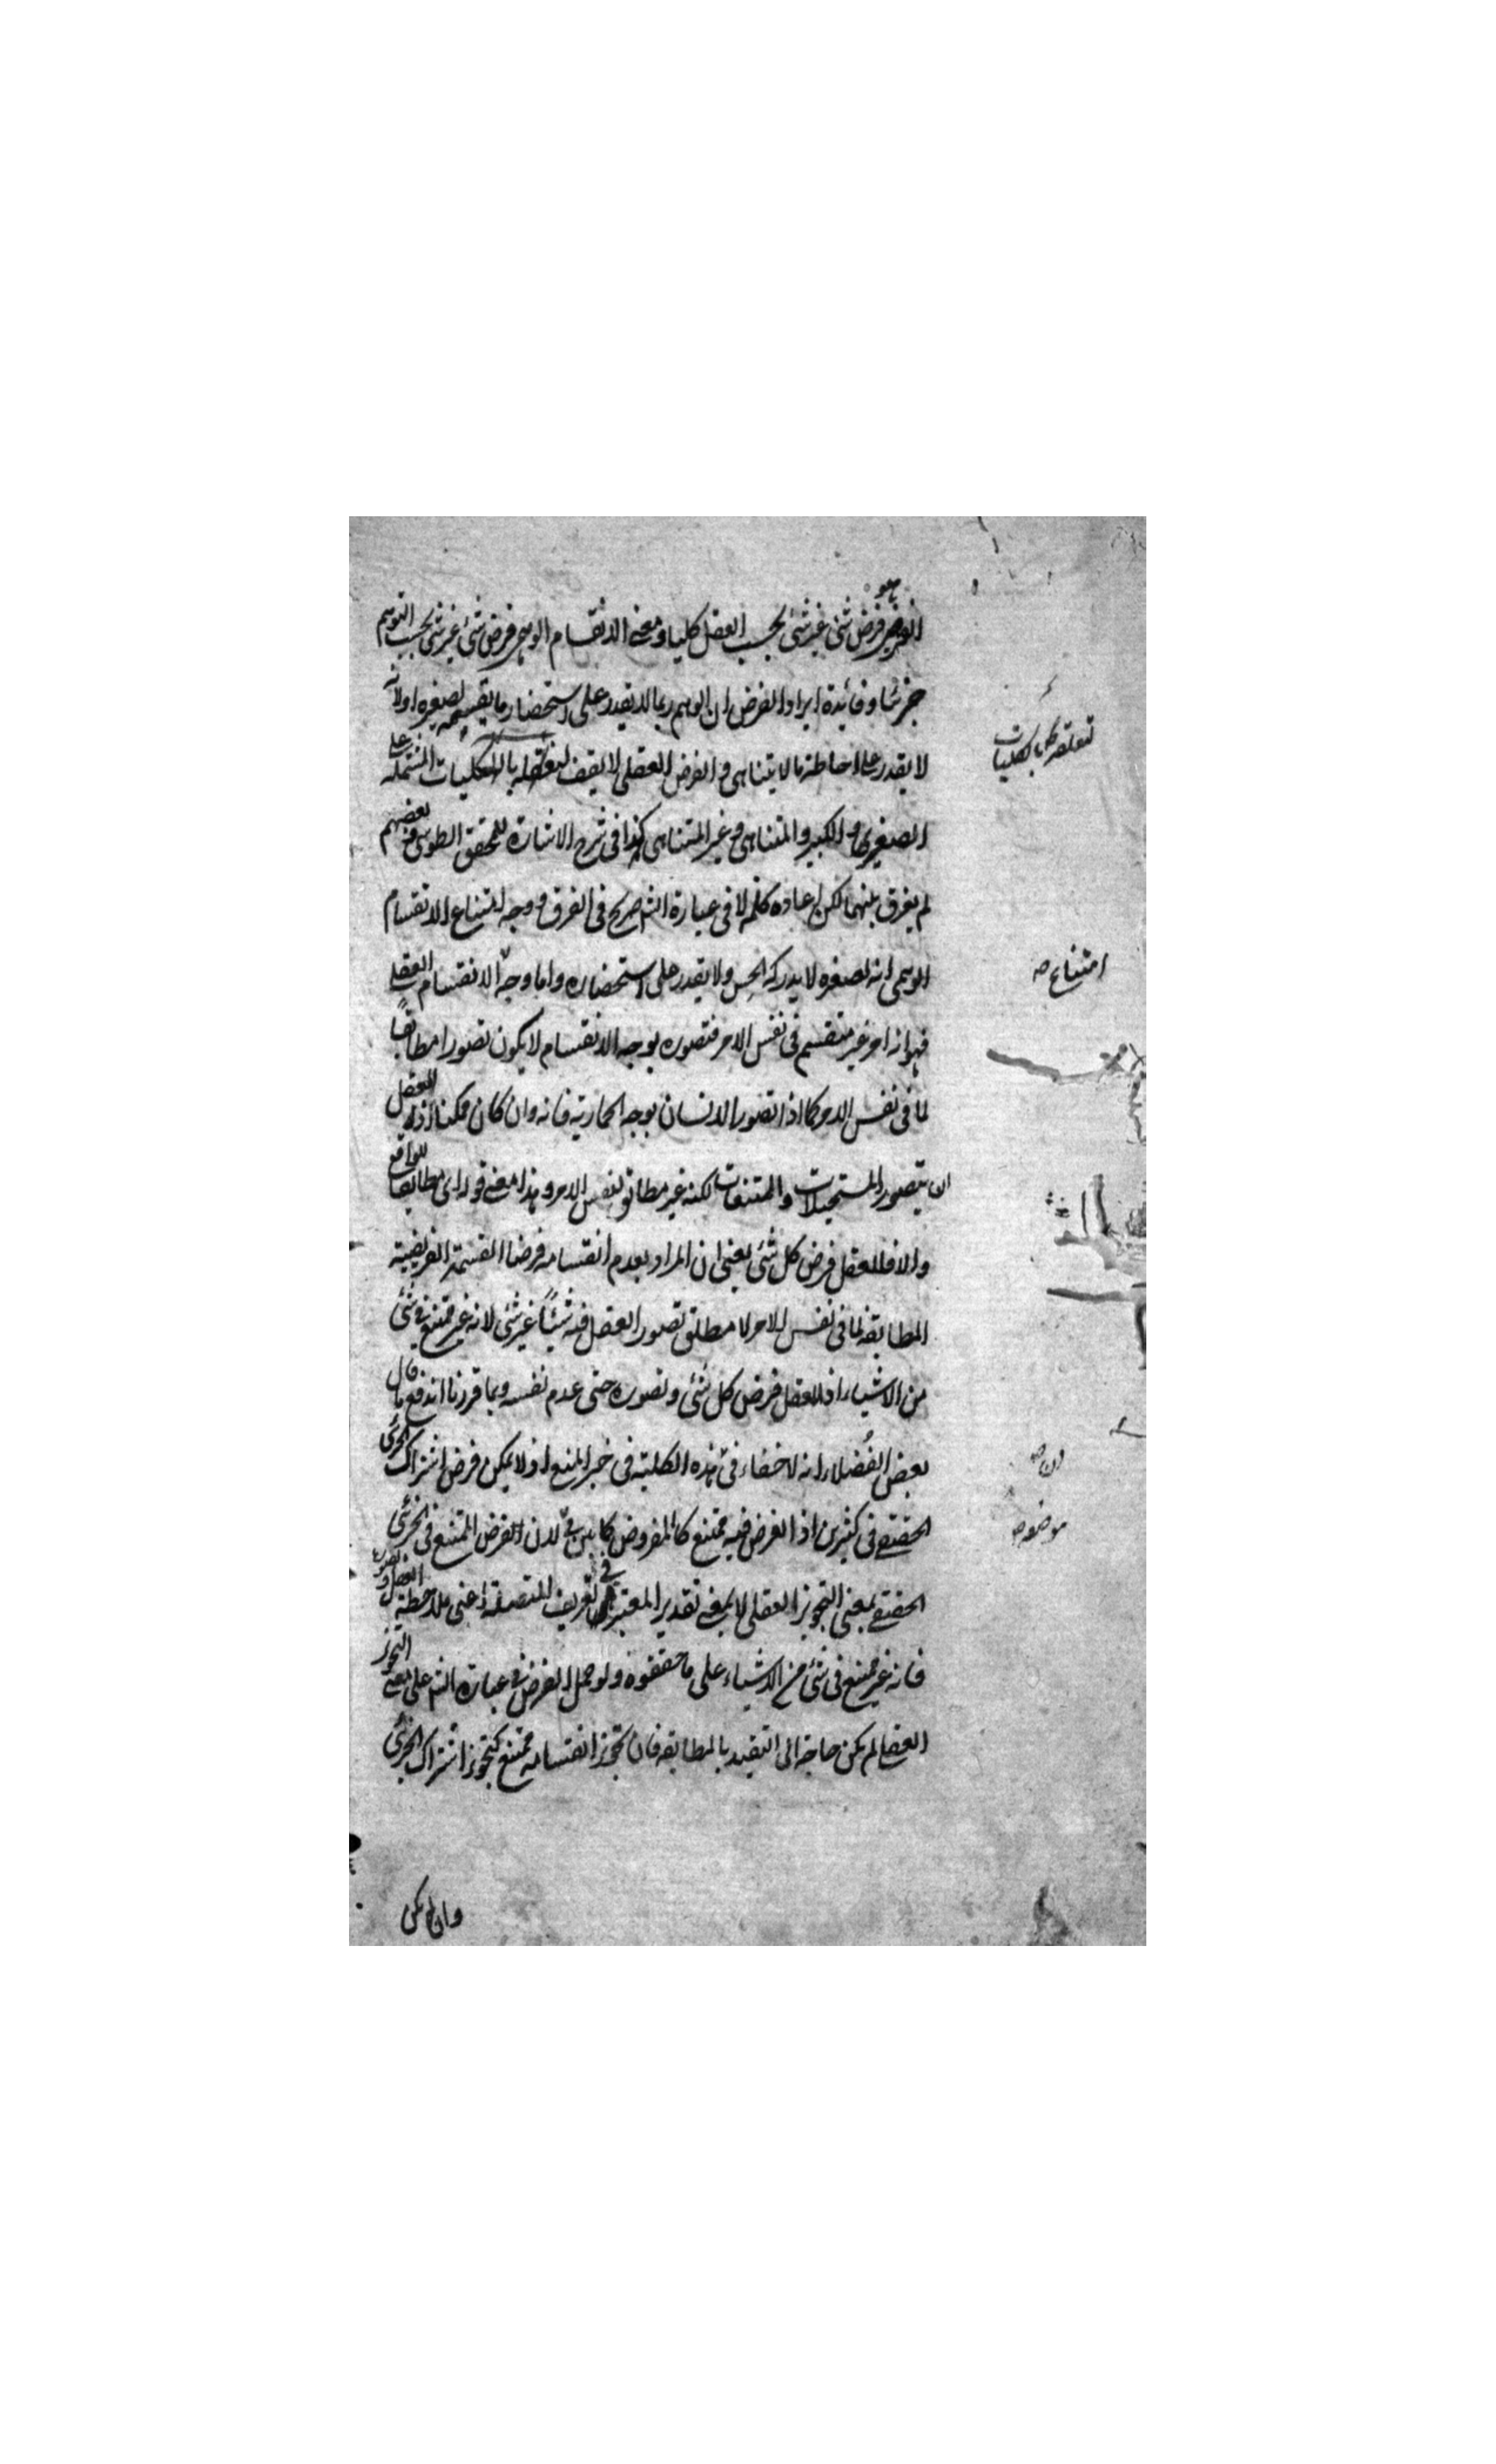 هو
الفرضي فرض شئ غير شئ بحسب العقل كليا ومعنى الانقسام الوهمي فرض شئ غير شئ بحسب التوهم
جزئيا وفائدة ايراد الفرض ان الوهم ربما لا يقدر على استحضار ما يقسمه لصغره او لانه
لا يقدر على احاطة ما لا يتناهى والفرض العقلي لا يقف لتعقله بالكليات المشتملة على
الصغير والكبير والمتناهي وغير المتناهي كذا في شرح الاشارة للمحقق الطوسي وبعضهم
لم يفرق بينهما لكن اعادة كلمة لا في عبارة الشم صريح في الفرق ووجه امتناع الانقسام
الوهمي انه لصغره لا يدركه الحس ولا يقدر على استحضاره واما وجه الانقسام العقلي
فهو انه امر غير منقسم في نفس الامر فتصوره بوجه الانقسام لا يكون تصورا مطابقا
لما في نفس الامر كما اذا تصور الانسان بوجه الحمارية فانه وان كان ممكنا اذ للعقل
ان يتصور المستحيلات والممتنعات لكنه غير مطابق لنفس الامر وهذا معنى قوله اي مطابقا للواقع
والا فللعقل فرض كل شئ يعني ان المراد بعدم انقسامه فرضا القسمة الفرضية
المطابقة لما في نفس الامر لا مطلق تصور العقل فيه شيئا غير شئ لانه غير ممتنع في شئ
من الاشياء اذ للعقل فرض كل شئ وتصوره حتى عدم نفسه وبما قررنا اندفع ما قال
بعض الفضلاء انه لا خفاء في هذه الكلية في حيز المنع اذ لا يمكن فرض اشتراك الجزئي
الحقيقي في كثيرين اذ الفرض فيه ممتنع كالمفروض كما بين في لان الفرض الممتنع في الجزئي
الحقيقي بمعنى التجويز العقلي لا بمعنى تقدير المعتبر في تعريف المتصلة اعني ملاحظة العقل وتصوره
فانه غير ممتنع في شئ من الاشياء على ما حققوه ولو حمل الفرض في عبارة الشم على معنى التجويز
العقلي لم يكن حاجة الى التقييد بالمطابقة فان تجويز انقسامه ممتنع كتجويز اشتراك الجزئي
وان لم يكن
لتعلقه بالكليات
امتناع صح
ان صح
موضعه صح